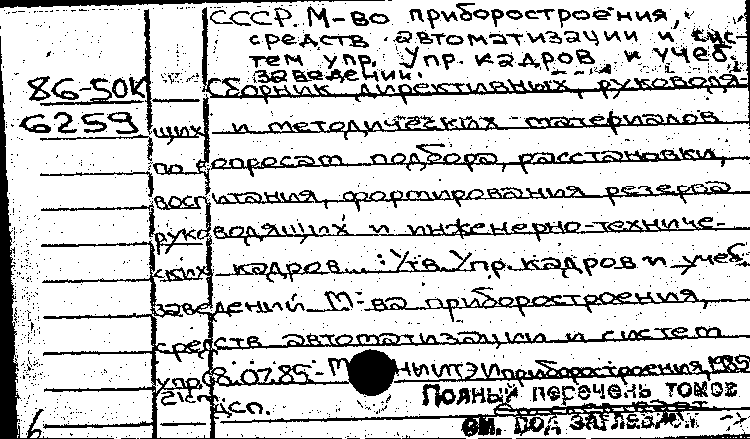 СССР. М-во приборостроения,
средств автоматизации и сис-
тем упр. Упр. кадров и учеб.
заведений.
86-50К
Сборник директивных, руководя-
6259
щих и методических материалов
по вопросам подбора, расстановки,
воспитания, формирования резерва
руководящих и инженерно-техниче-
ских кадров... : Утв. Упр. кадров и учеб.
заведений М-ва приборостроения,
средств автоматизации и систем
упр. 8.07.85.- М ЦНИИТЭИприборостроения, 1985
ДСП.
Полный перечень томов
см. под заглавием